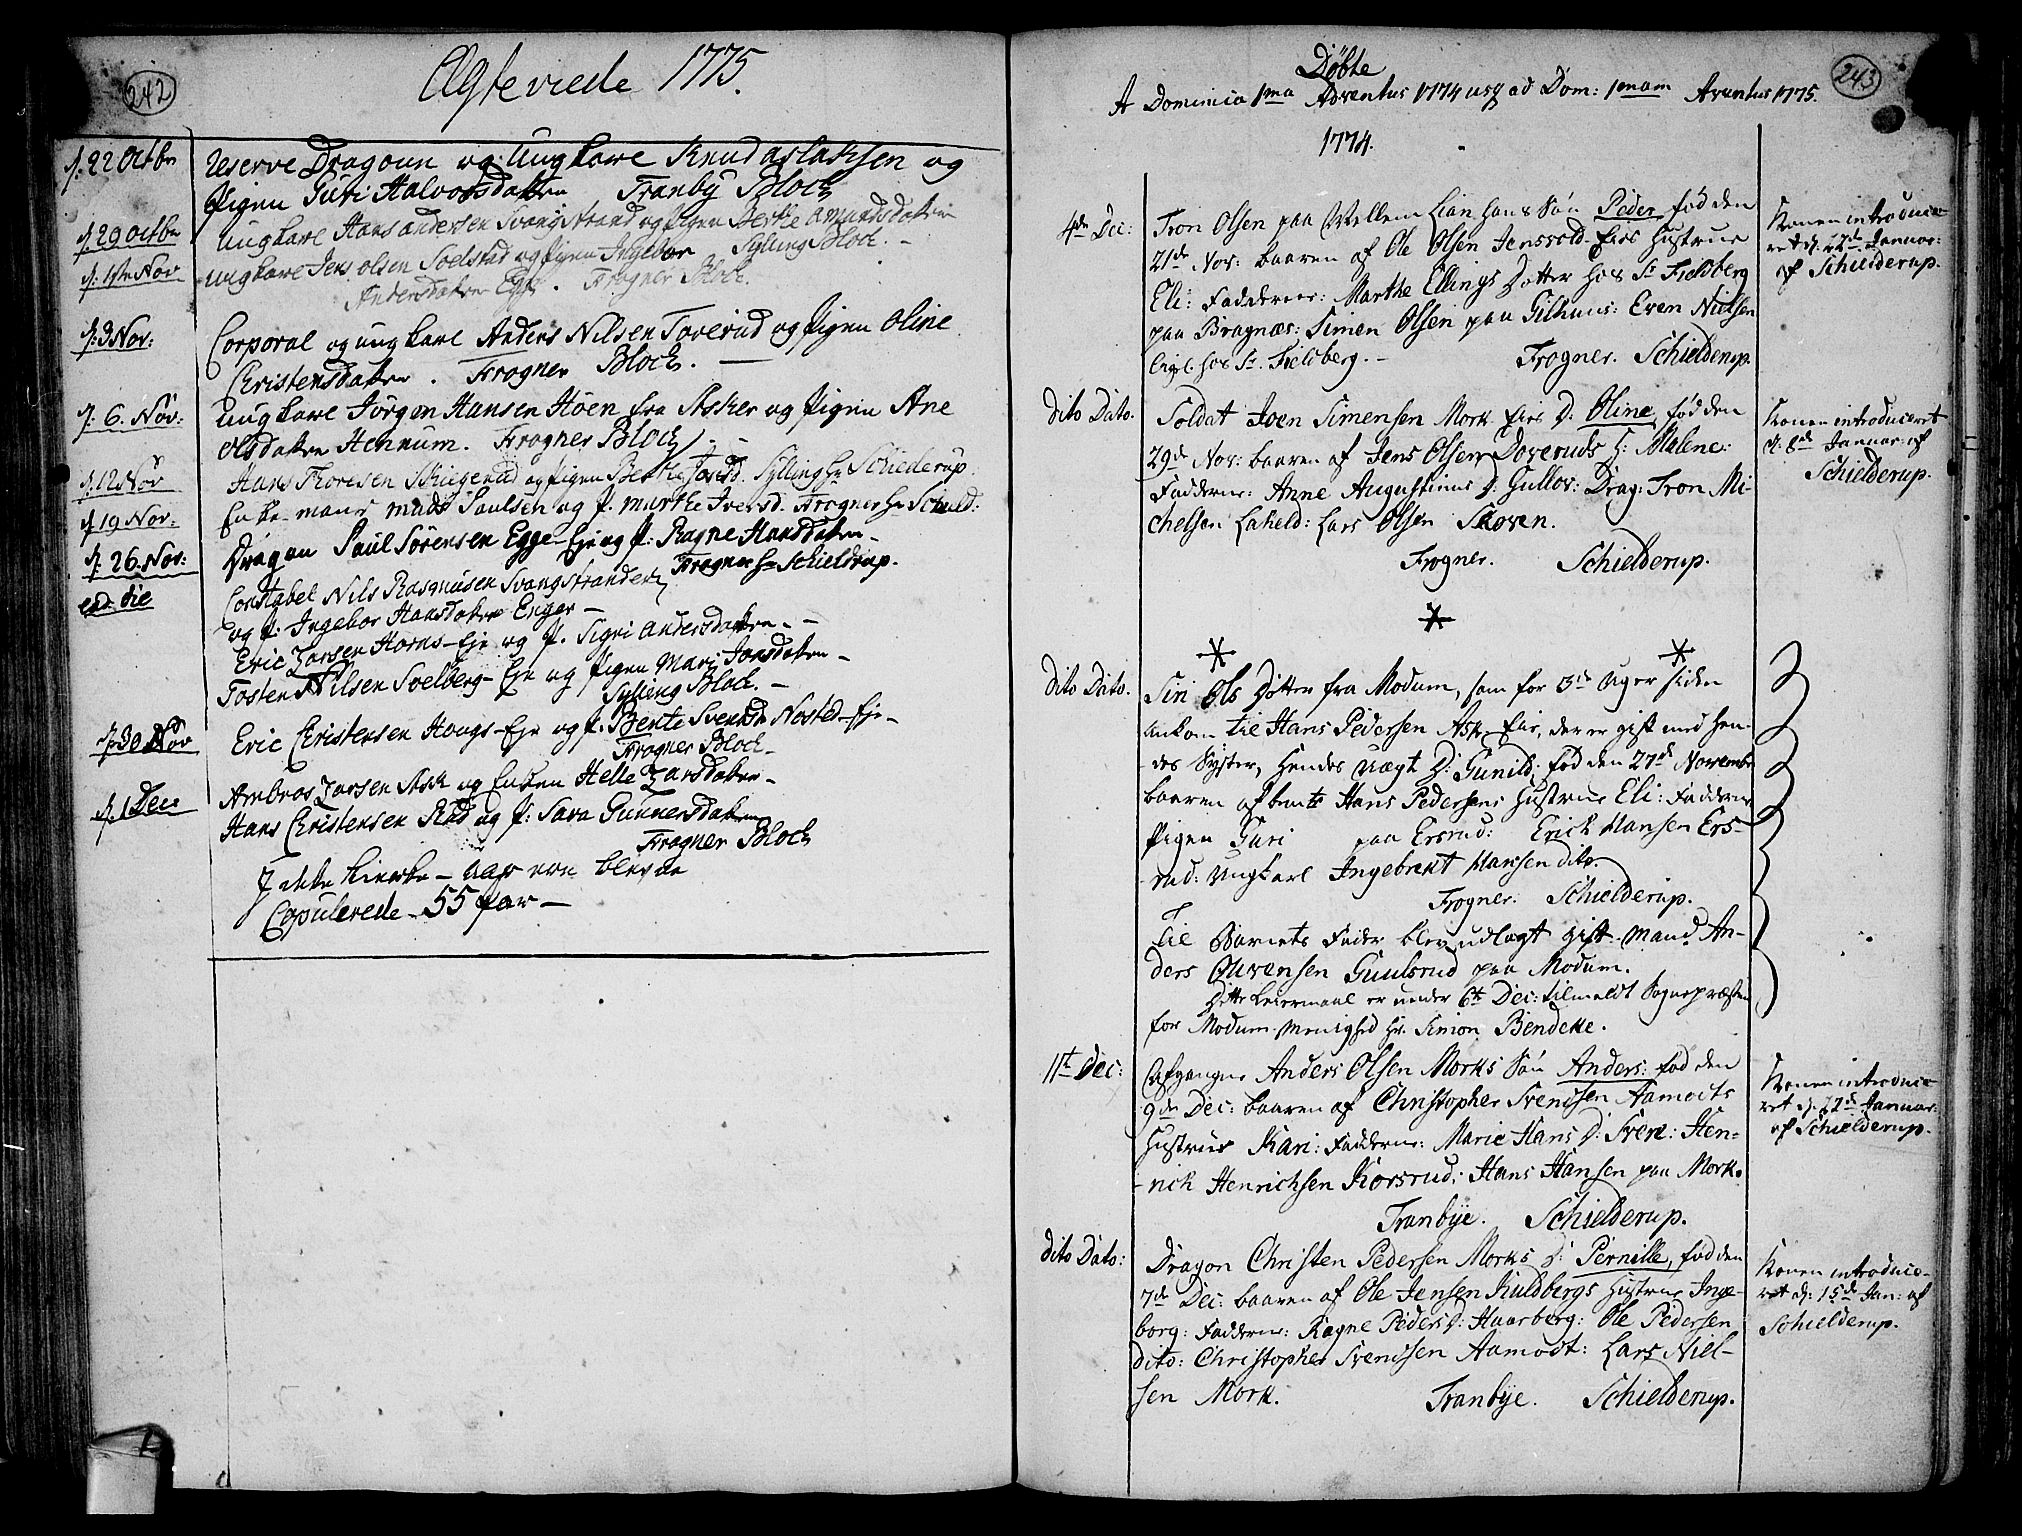 242
Ægteviede 1775.
d. 22 Octbr
Reserve Dragoun og Ungkarl Knud Aslaksen og
Pigen Guri Halvorsdatter Tranby Bloch
d. 29 Octbr
Ungkarl Hans Andersen Svangstrand og Pigen Berthe Amundsdatter
Sylling Bloch. -
d. 1te Nov
ungkarl Jens Olsen Soelstad og Pigen Ingebor
Andersdatter Egge. Frogner Bloch.
d: 3 Nov:
Corporal og ungkarl Anders Nilsen Toverud og Pigen Oline
Christensdatter. Frogner Bloch. —
d. 6. Nov:
ungkarl Jørgen Hansen Høen fra Asker og Pigen Ane
Olsdatter Hennum. Frogner Bloch. -
d. 12 Nov
Hans Thoresen Skiegerud og Pigen Berthe Joesd. Sylling Hr Schielderup.
d. 19 Nov:
Enke-mand Mads Paulsen og P. Marthe Iversd. Frogner Hr Schield:
d. 26. Nov:
Dragon Paul Sørensen Egge-Eje og P: Ragne Hansdatter -
Frogner Hr Schieldrup.
eod. die
Constabel Nils Rasmusen Svangstrander
og P: Ingebor Hansdatter Enger -
Eric Larsen Horns-Eje og P. Sigri Andersdatter. -
Tosten Nilsen Soelberg-Eje og Pigen Mari Jonsdatter -
Sylling Bloch. -
d. 30 Nov
Eric Christensen Hougs-Eje og P. Bente Svensd. Nosted-Eje -
Frogner Bloch -
d. 1 Dec:
Ambros Larsen Ask og Enken Helle Larsdatter -
Hans Christensen Rød og P: Sara Gunnersdatter
Frogner Bloch
I dette Kierke-aar ere blevne
Copulerede 55 par -
243
Døbte
A Dominica 1ma Adventus 1774 usq ad Dom: 1mam Aventus 1775.
1774.
4de Dec:
Tron Olsen paa Vellem Lian hans Søn Peder, fød den
21de Nov: baaren af Ole Olsen Jensvold-Eies Hustrue
Eli: Fadderne: Marthe Ellings Dotter hos Sr Fieldberg
paa Bragnæs: Simen Olsen paa Gilhuus: Even Nielsen
lige hos Sr. Fieldberg. - Frogner. Schielderup.
Konen introduce-
ret d: 22de Januar:
af Schielderup.
Dito Dato.
Soldat Joen Simensen Mork-Eies D: Oline, fød den
29de Nov: baaren af Jens Olsen Doveruds H: Malene:
Fadderne: Anne Augustinus D: Gullov: Drag: Tron Mi-
chelsen Laheld: Lars Olsen Skoven.
Frogner. Schielderup.
Konen introduceret
d: 8de Januar: af
Schielderup.
Dito Dato.
Siri Ols Dotter fra Modum, som for 3de Uger siden
ankom til Hans Pedersen Ask-Eie, der er gift med hen-
des Syster, hendes uægt D: Gunild, fød den 27de Novembr
baaren af bemte Hans Pedersens Hustrue Eli: Fadderne
Pigen Guri paa Ersrud: Erich Hansen Ers-
rud: Ungkarl Ingebrekt Hansen dito.
Frogner. Schielderup.
Til Barnets Fader blev udlagt gift-Mand An-
ders Ouvensen Guulsrud paa Modum.
Dette Leiermaal er under 6te Dec: tilmeldt Sognepræsten
for Modum Menighed Hr. Simon Bendeke.
11te Dec:
Afgangne Anders Olsen Morks Søn Anders: fød den
9de Dec: baaren af Christopher Svendsen Aamodts
Hustrue Kari: Fadderne: Marie Hans D: Svere: Hen-
rich Henrichsen Korsrud: Hans Hansen paa Mork.
Tranbye. Schielderup.
Konen introduce-
ret d. 22de Januar:
af Schielderup.
Dito Dato:
Dragon Christen Pedersen Morks D: Pernille, fød den
7de Dec: baaren af Ole Jensen Kuldbergs Hustrue Inge-
borg: Fadderne: Ragne Peders D: Haarberg: Ole Pedersen
dito: Christopher Svendsen Aamodt: Lars Niel-
sen Mork. Tranbye. Schielderup.
Konen introduce-
ret d: 15de Jan: af
Schielderup.